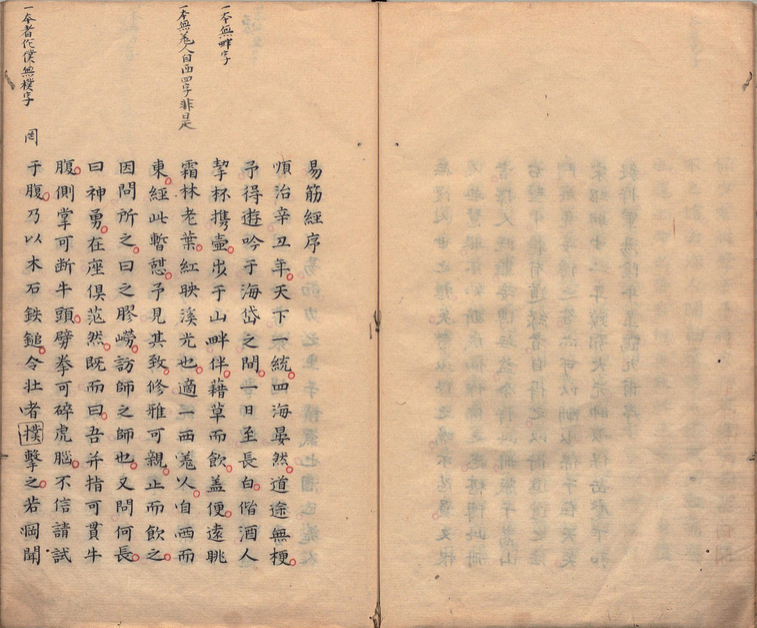 易筋經序
順治辛丑年天下一統四海晏然道途無梗
予得遊吟于海岱之間一日至長白偕酒人
挈杯携壷出于山畔伴藉草而飲蓋便遠眺
霜林老葉紅映溪光也適一西羗人自西而
東經此暫憩予見其致修雅可親止而飲之
因問所之曰之膠嶗訪師之師也又問何長
曰神勇在座俱茫然既而曰吾并指可貫牛
腹側掌可断牛頭劈拳可碎虎腦不信請試
于腹乃以木石鉄鎚令壮者撲擊之若聞
一本無畔字
一本無羗人自西四字非是
一本者作僕無撲字
罔